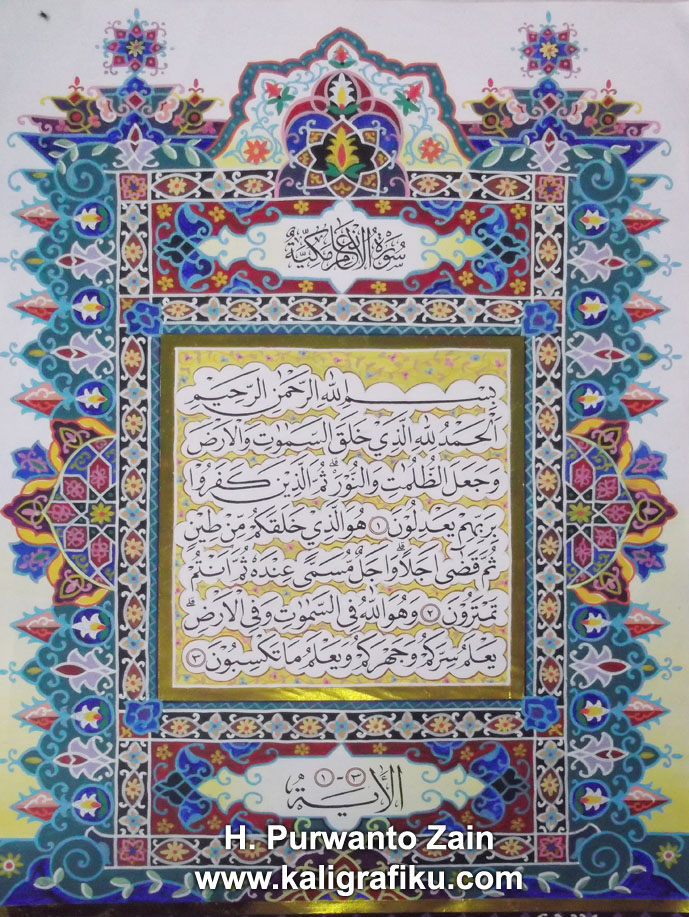 سُوْرَةُ الْاَنْعَامِ مَكِّيَّةٌ
بِسْمِ اللهِ الرَّحْمٰنِ الرَّحِيْمِ
اَلْحَمْدُ لِلهِ الَّذِيْ خَلَقَ السَّمٰوٰتِ وَالْاَرْضَ
وَجَعَلَ الظُّلُمٰتِ وَالنُّوْرَ ۗ ثُمَّ الَّذِيْنَ كَفَرُوْا
بِرَبِّهِمْ يَعْدِلُوْنَ ١ هُوَ الَّذِيْ خَلَقَكُمْ مِنْ طِيْنٍ
ثُمَّ قَضٰى اَجَلًا ۗ وَاَجَلٌ مُسَمًّى عِنْدَهٗ ثُمَّ اَنْتُمْ
تَمْتَرُوْنَ ٢ وَهُوَ اللهُ فِى السَّمٰوٰتِ وَفِى الْاَرْضِ ۗ
يَعْلَمُ سِرَّكُمْ وَجَهْرَكُمْ وَيَعْلَمُ مَا تَكْسِبُوْنَ ٣
الْاٰيَةُ ١-٣
H. Purwanto Zain
www.kaligrafiku.com